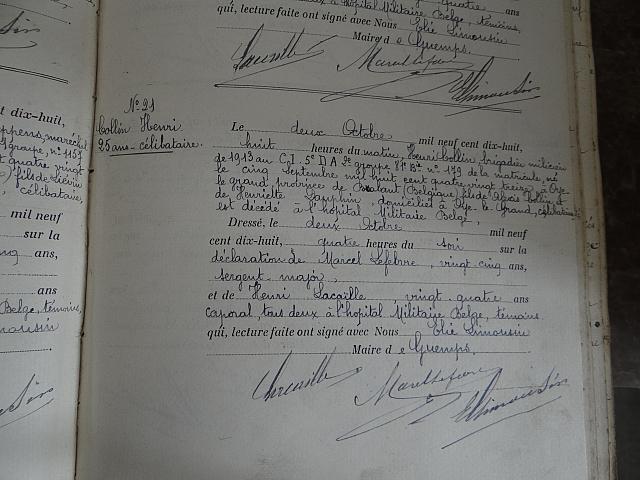 quatre ans
à l'hopital Militaire Belge, témoins,
qui, lecture faite ont signé avec Nous Elie Limousin
Maire de Guemps,
Lacaille Marcel Lefebvre Elimousin
N° 21
Collin Henri
25 ans - célibataire.
Le deux Octobre mil neuf cent dix-huit,
huit heures du matin, Henri Collin, brigadier milicien
de 1913 au C.I. 5e D A groupe Bie n° 179 de la matricule, né
le cinq Septembre mil huit cent quatre vingt treize à Orp-
le grand province de Brabant (Belgique) fils de Collin, &
de Henriette Dapphin, domiciliés à Orp-le-Grand, célibataire
est décédé à l'hopital Militaire Belge,
Dressé, le deux Octobre mil neuf
cent dix-huit, quatre heures du soir sur la
déclaration de Marcel Lefebvre, vingt cinq ans,
sergent major,
et de Henri Lacaille, vingt quatre ans
caporal, tous deux à l'hopital Militaire Belge, témoins,
qui, lecture faite ont signé avec Nous Elie Limousin
Maire de Guemps,
Lacaille Marcel Lefebvre Elimousin
t dix-huit,
maréchal
groupe, n° 1157
quatre vingt
fils de
célibataire,
mil neuf
sur la
ans,
ans
Belge, témoins,
Limousin